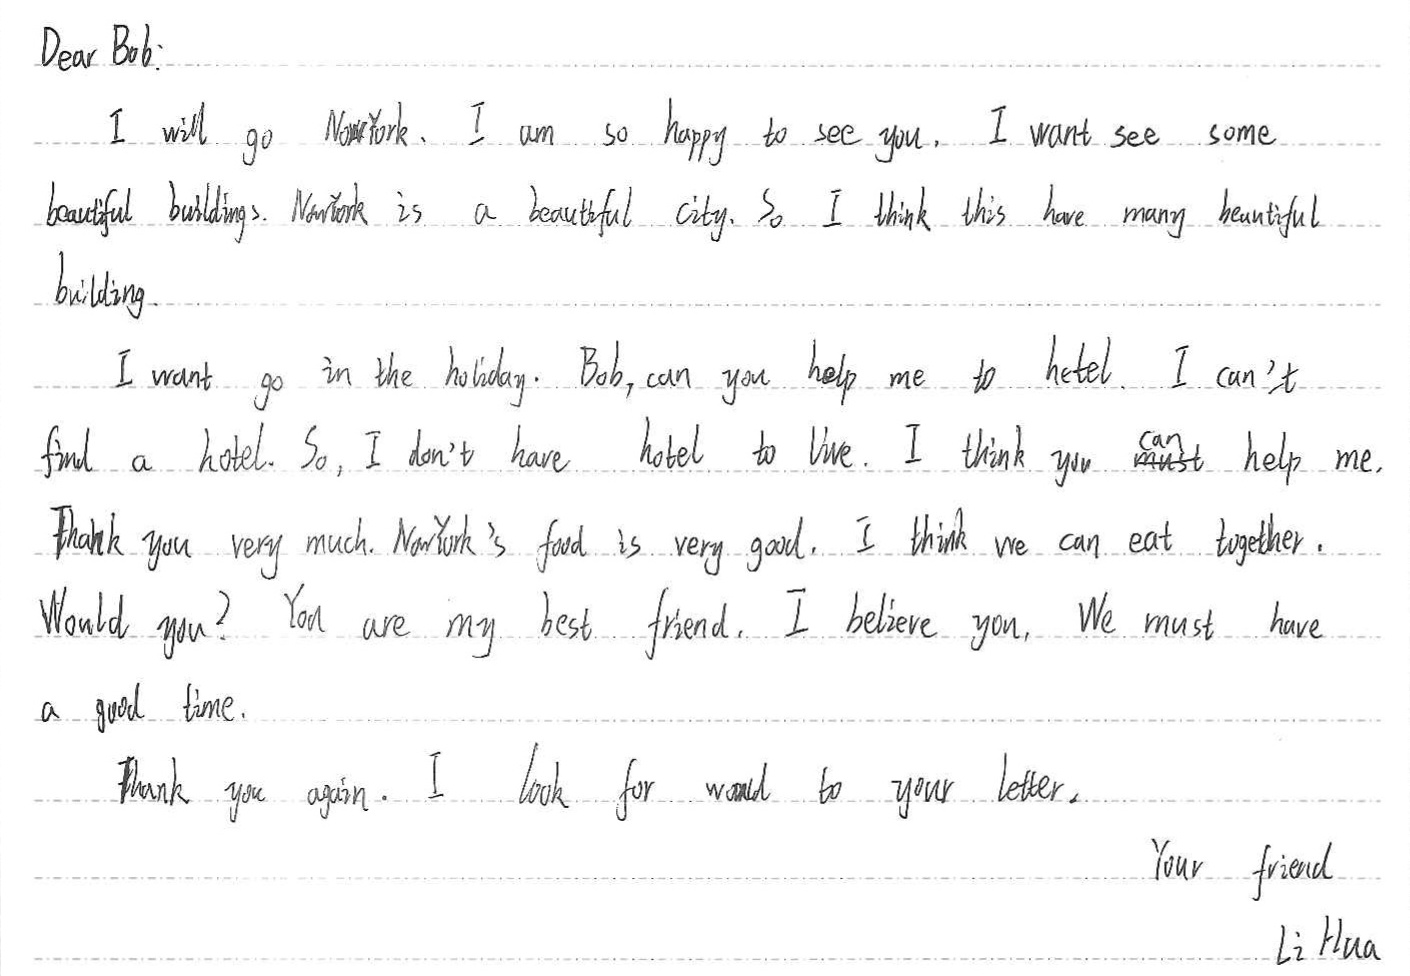 Dear Bob:
I will go NowYork. I am so happy to see you. I want see some
beautiful buildings. NowYork is a beautiful city. So I think this have many beautiful
building.
I want go in the holiday. Bob, can you help me to hetel. I can't
find a hotel. So, I don't have hotel to live. I think you can must help me.
Thank you very much. NowYork's food is very good. I think we can eat together.
Would you? You are my best friend. I believe you, We must have
a good time.
Thank you again. I look for would to your letter.
Your friend
Li Hua